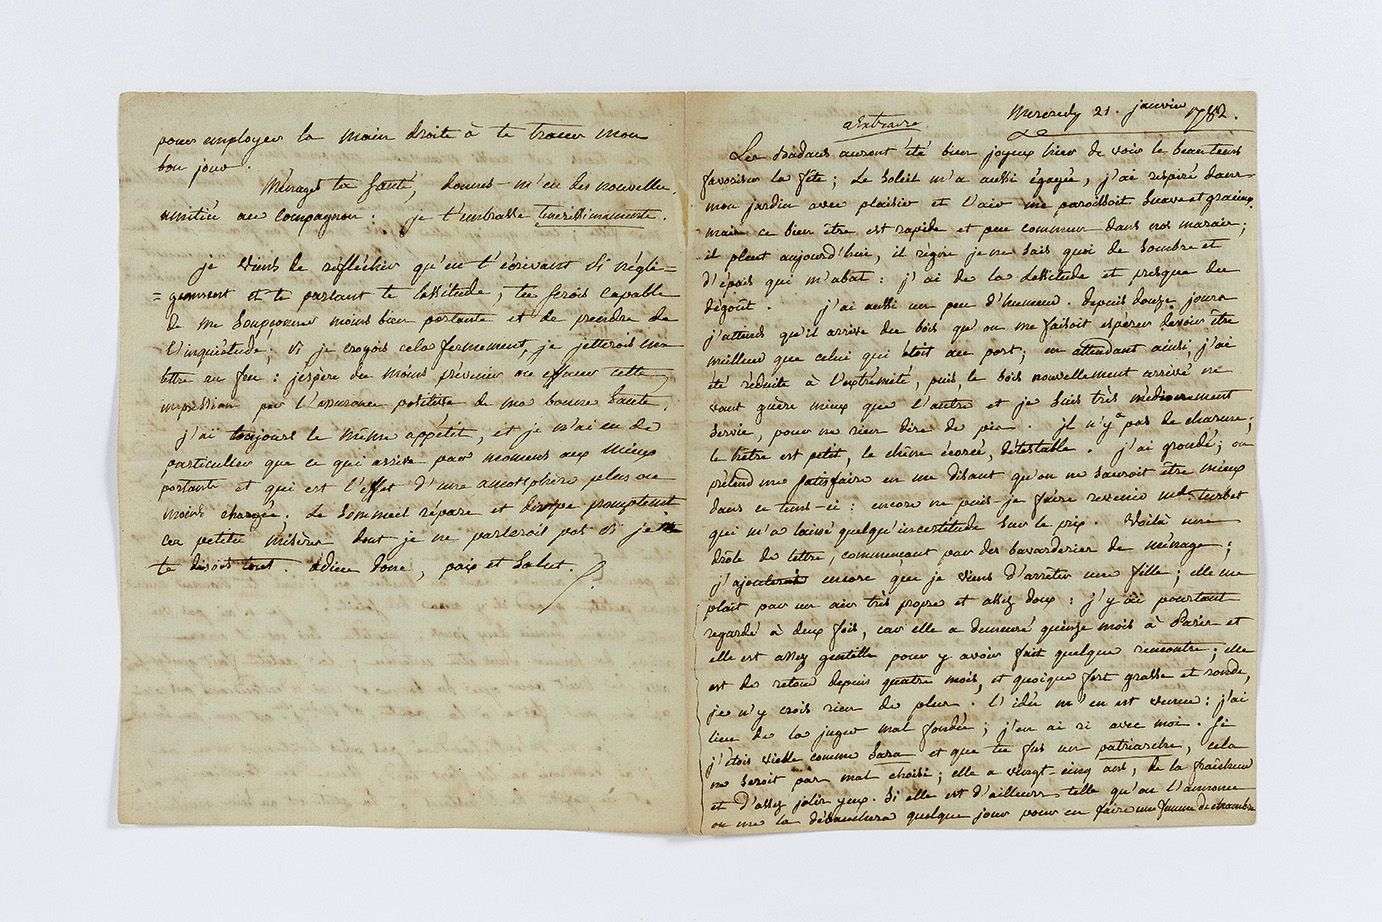 pour employer la main droite à te tracer mon
bon jour.
Ménages ta santé, donnes-m'en des nouvelles.
amitié au compagnon : je t'embrasse
je viens de réfléchir qu'en t'écrivant si négli=
=gemment et te parlant de lassitude, tu serois capable
de me soupçonner moins bien portante et de prendre de
l'inquiétude; si je croyois cela fermement, je jetterois ma
lettre au feu : j'espère du moins prévenir ou effacer cette
impression par l'assurance positive de ma bonne santé.
j'ai toujours le même appétit, et je n'ai eu de
particulier que ce qui arrive par momens aux mieux
portants et qui est l'effet d'une atmosphère plus ou
moins chargée. Le sommeil répare et dissipe promptement
ces petites misères dont je ne parlerois pas si je ne
te disois tout. adieu donc, paix et salut.
Mercredy 21. janvier 1782.
Les badauts auront été bien joyeux hier de voir le beau tems
favoriser la fête; Le Soleil m'a aussi égayée, j'ai respiré dans
mon jardin avec plaisir et l'air me paroissoit suave et gracieux.
mais ce bien être est rapide et peu commun dans nos marais;
il pleut aujourd'hui, il règne je ne sais quoi de sombre et
d'épais qui m'abat : j'ai de la lassitude et presque du
dégoût. j'ai aussi un peu d'humeur. depuis douze jours
j'attends qu'il arrive du bois qu'on me faisoit espérer devoir être
meilleur que celui qui étoit au port; en attendant ainsi, j'ai
été réduite à l'extrémité, puis, le bois nouvellement arrivé ne
vaut guère mieux que l'autre et je suis très médiocrement
servie, pour ne rien dire de pis. Il n'y a pas de charme;
le hêtre est petit, le chêne écorcé, détestable. j'ai grondé; on
prétend me satisfaire en me disant qu'on ne sauroit être mieux
dans ce tems-ci : encore ne puis-je faire revenir
qui m'a laissé quelqu'incertitude sur le prix. Voilà une
drole de lettre, commençant par des bavarderies de ménage;
j'ajouterai encore que je viens d'arrêter une fille; elle me
plait par un air très propre et assez doux : j'y ai pourtant
regardé à deux fois, car elle a demeuré quinze mois à Paris et
elle est assez gentille pour y avoir fait quelque rencontre; elle
est de retour depuis quatre mois, et quoique fort grasse et ronde,
je n'y crois rien de plus. L'idée m'en est venue : j'ai
lieu de la juger mal fondée; j'en ai ri avec moi. Si
j'étois vieille comme Sara et que tu fus un patriarche, cela
ne seroit pas mal choisi; elle a vingt cinq ans, de la fraîcheur
et d'assez jolis yeux. Si elle est d'ailleurs telle qu'on l'annonce
on me la débauchera quelque jour pour en faire une femme de chambre